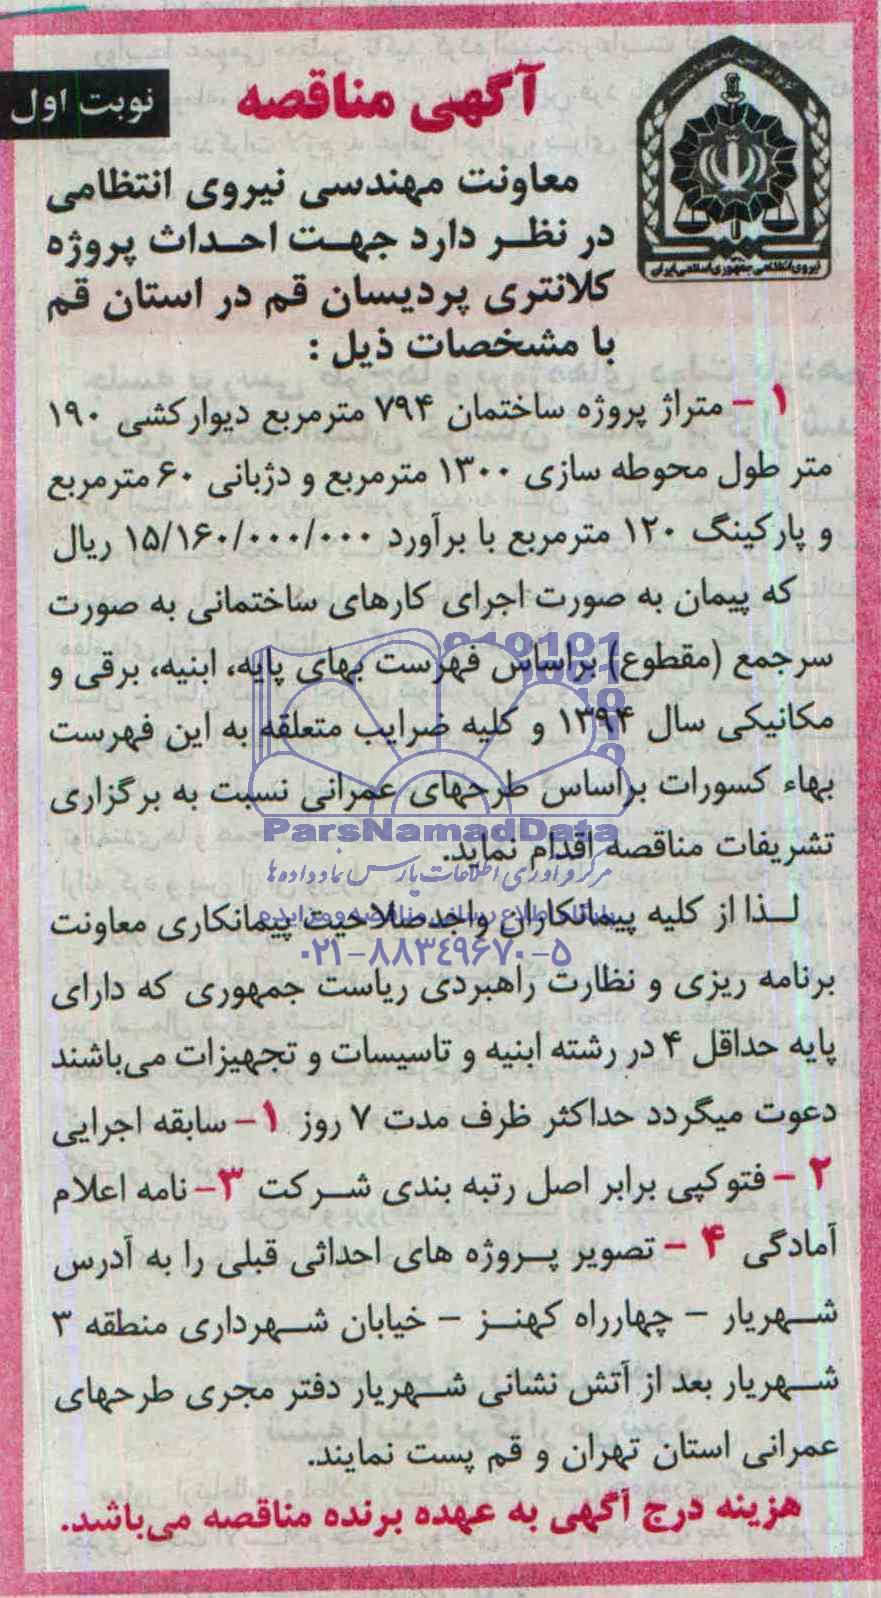 آگهی مناقصه
نوبت اول
نیروی انتظامی جمهوری اسلامی ایران
معاونت مهندسی نیروی انتظامی
در نظر دارد جهت احداث پروژه
کلانتری پردیسان قم در استان قم
با مشخصات ذیل :
۱ - متراژ پروژه ساختمان ۷۹۴ مترمربع دیوارکشی ۱۹۰
متر طول محوطه سازی ۱۳۰۰ مترمربع و دژبانی ۶۰ مترمربع
و پارکینگ ۱۲۰ مترمربع با برآورد ۱۵/۱۶۰/۰۰۰/۰۰۰ ریال
که پیمان به صورت اجرای کارهای ساختمانی به صورت
سرجمع (مقطوع) براساس فهرست بهای پایه، ابنیه، برقی و
مکانیکی سال ۱۳۹۴ و کلیه ضرایب متعلقه به این فهرست
بهاء کسورات براساس طرحهای عمرانی نسبت به برگزاری
تشریفات مناقصه اقدام نماید.
ParsNamadData
مرکز فرآوری اطلاعات پارس نماد داده ها
لذا از کلیه پیمانکاران واجدصلاحیت پیمانکاری معاونت
پایگاه اطلاع رسانی مناقصه و مزایده
۰۲۱-۸۸۳۴۹۶۷۰-۵
برنامه ریزی و نظارت راهبردی ریاست جمهوری که دارای
پایه حداقل ۴ در رشته ابنیه و تاسیسات و تجهیزات می‌باشند
دعوت میگردد حداکثر ظرف مدت ۷ روز ۱- سابقه اجرایی
۲ - فتوکپی برابر اصل رتبه بندی شرکت ۳- نامه اعلام
آمادگی ۴ - تصویر پروژه های احداثی قبلی را به آدرس
شهریار - چهارراه کهنز - خیابان شهرداری منطقه ۳
شهریار بعد از آتش نشانی شهریار دفتر مجری طرحهای
عمرانی استان تهران و قم پست نمایند.
هزینه درج آگهی به عهده برنده مناقصه می‌باشد.